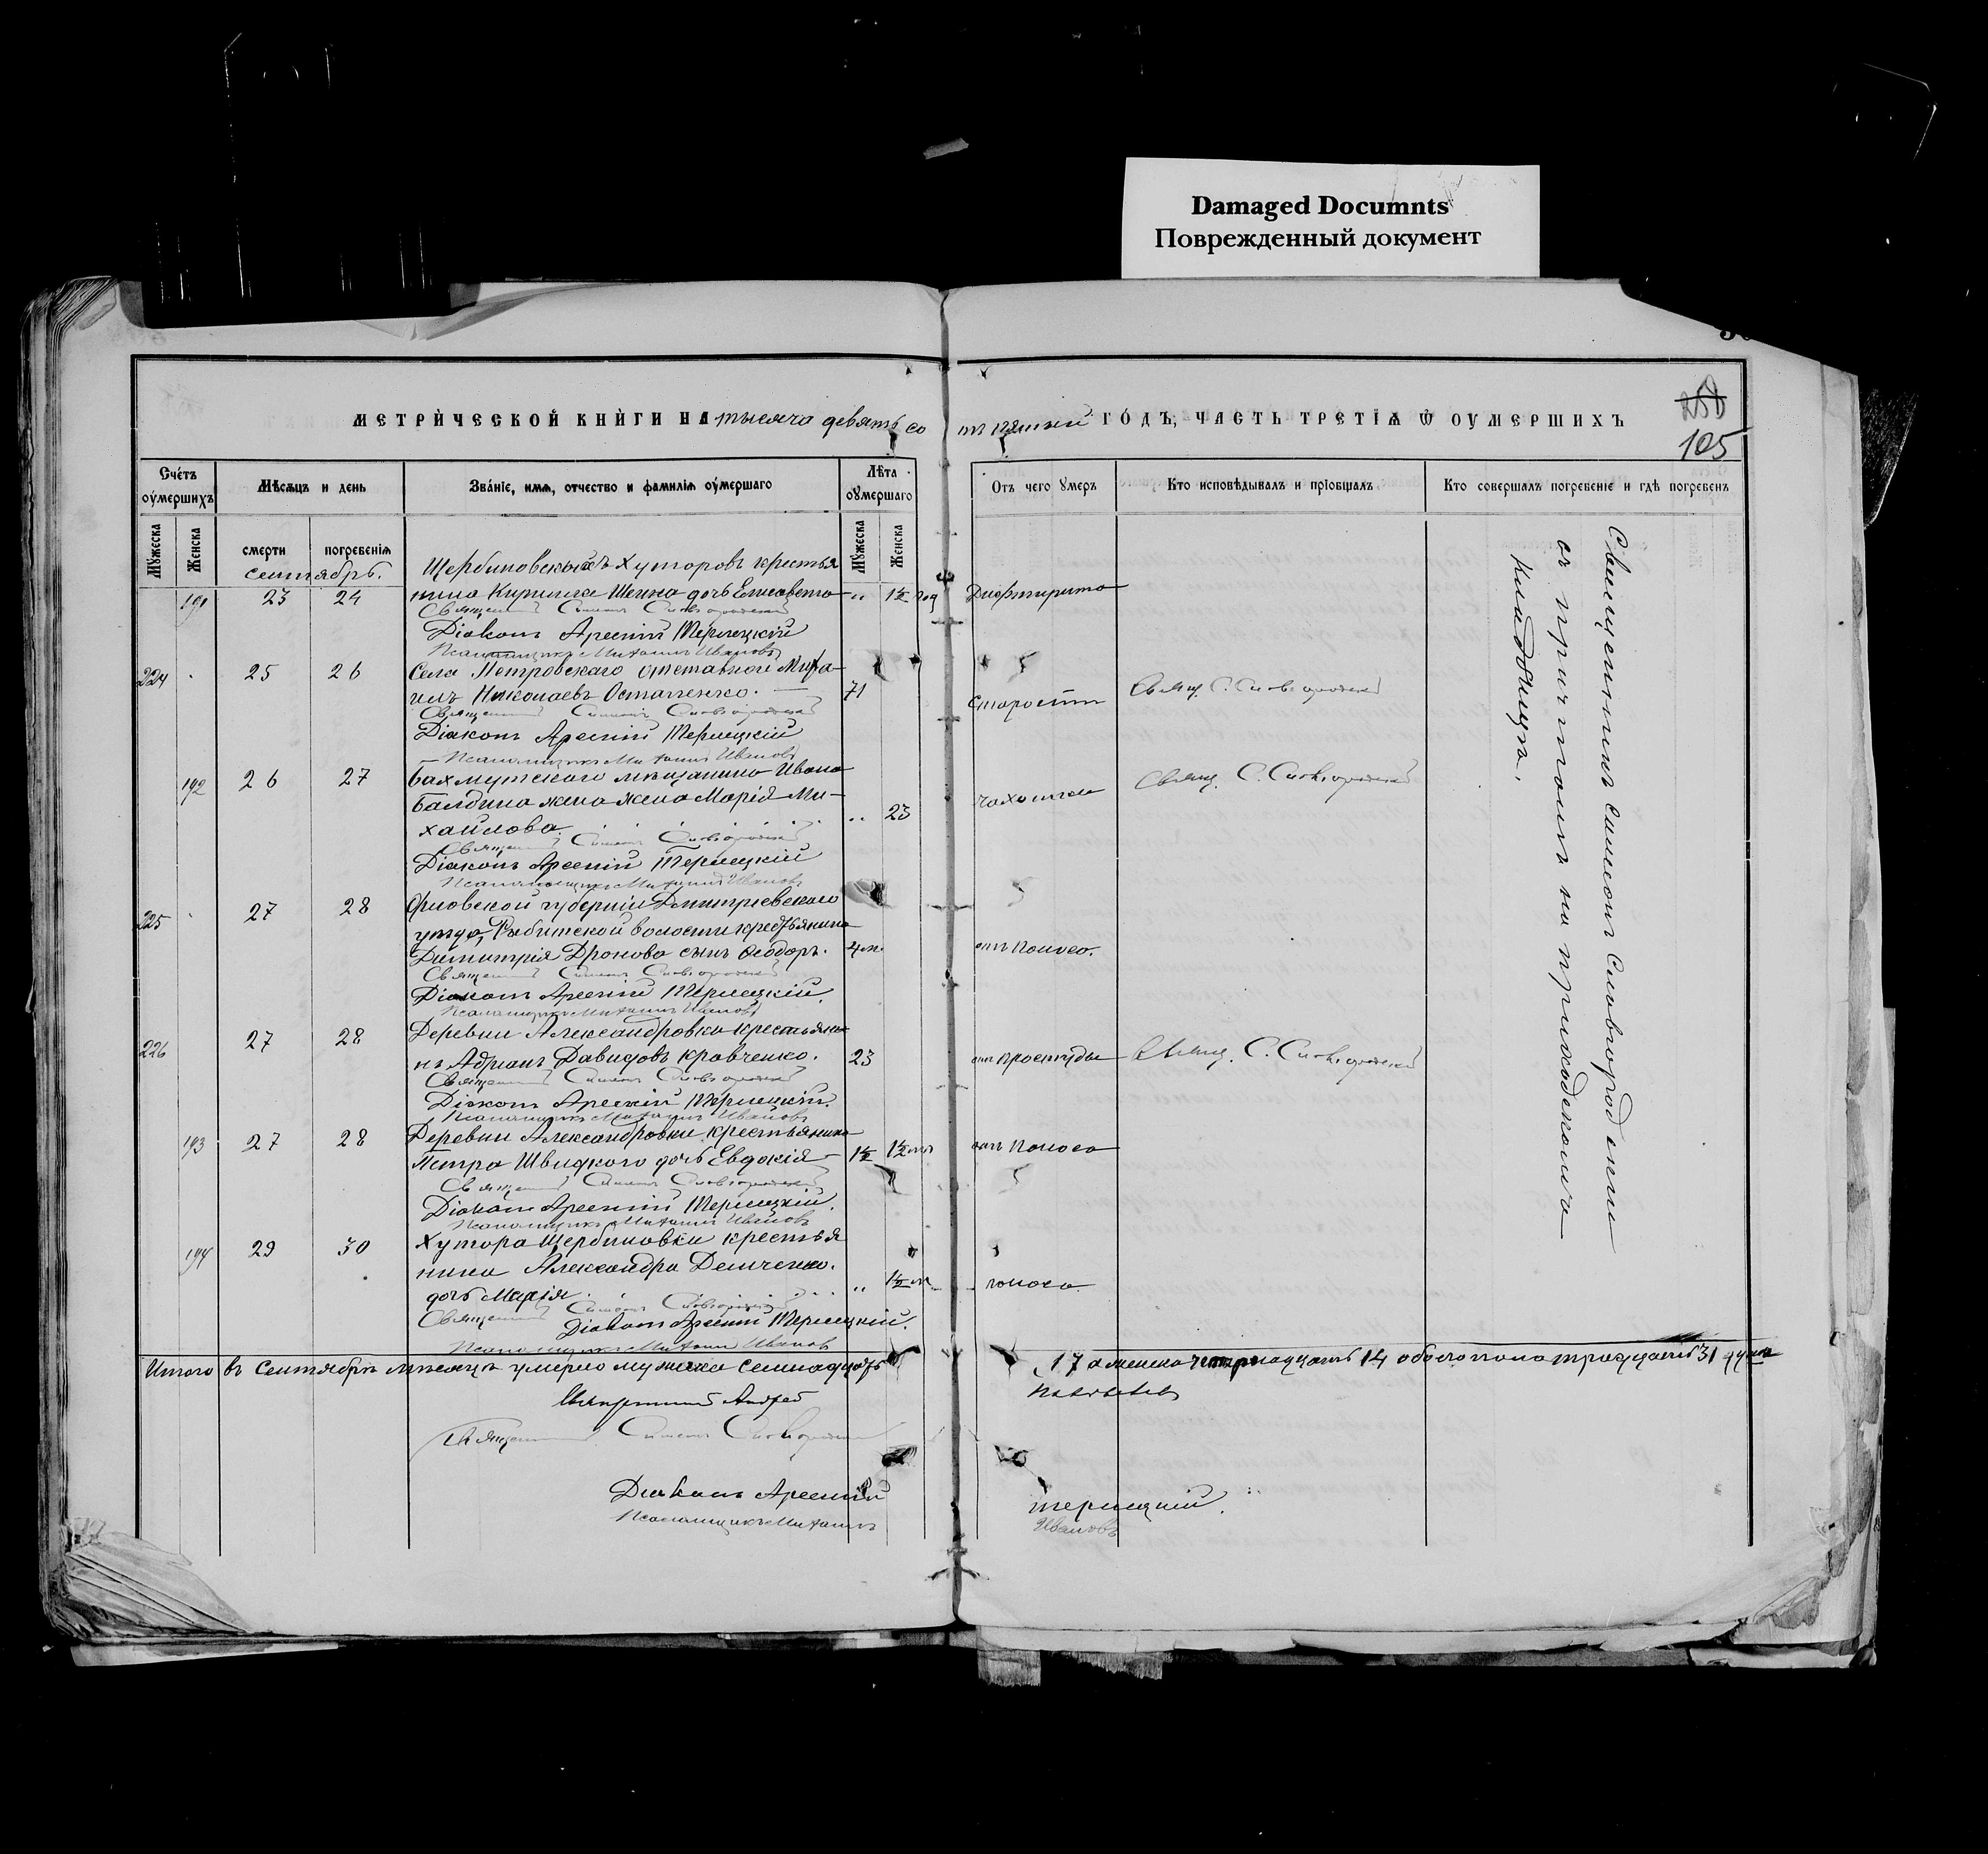 Damaged Documnts
Поврежденный документ
105
МЕТРИЧЕСКОЙ КНИГИ НА тысяча девятьсо тъ пятый ГОДЪ, ЧАСТЬ ТРЕТІЯ Ѿ ОУМЕРШИХЪ
Счетъ оумершихъ
Мѣсяцъ и день
Званіе, имя, отчество и фамилія оумершаго
Лѣта оумершаго
Отъ чего умеръ
Кто исповѣдывалъ и пріобщалъ
Кто совершалъ погребеніе и гдѣ погребенъ
Мужеска
Женска
смерти
погребенія
Мужеска
Женска
сентябрь.
Щербиновскихъ хуторовъ крестья
191 23 24 нина Кирилла дочь Елисавета „ 1½ год Дифтирита
Священникъ Симеонъ
Діаконъ Арсеній Терлецкій
Псаломщикъ Михаилъ Ивановъ
224 25 26 Села Петровскаго отставной Миха-
илъ Николаевъ Остапенко. 71 старости Свящ. С.
Священникъ Симеонъ
Діаконъ Арсеній Терлецкій
Псаломщикъ Михаилъ Ивановъ
192 26 27 Бахмутскаго мѣщанина Ивана
Балдина жена жена Марія Ми-
хайлова. „ 23 чахотки Свящ. С.
Священникъ Симеонъ
Діаконъ Арсеній Терлецкій
Псаломщикъ Михаилъ Ивановъ
225 27 28 губерніи Дмитріевскаго
уѣзда, волости крестьянина
Димитрія Дронова сынъ Ѳеодоръ. 4 м. отъ поноса.
Священникъ Симеонъ
Діаконъ Арсеній Терлецкій.
Псаломщикъ Михаилъ Ивановъ
226 27 28 Деревни Александровки крестьяни-
нъ Адріанъ Давидовъ Кравченко. 23 отъ простуды Свящ. С.
Священникъ Симеонъ
Діаконъ Арсеній Терлецкій.
Псаломщикъ Михаилъ Ивановъ
193 27 28 Деревни Александровки крестьянина
Петра Швидкого дочь Евдокія 1½ 1½ отъ поноса
Священникъ Симеонъ
Діаконъ Арсеній Терлецкій.
Псаломщикъ Михаилъ Ивановъ
194 29 30 Хутора Щербиновки крестья
нина Александра Демченко.
дочь Марія. „ 1½ м. поноса.
Священникъ Симеонъ
Діаконъ Арсеній Терлецкій.
Псаломщикъ Михаилъ Ивановъ
Священникъ Симеонъ
съ причтомъ на приходскомъ
кладбищѣ.
Итого въ Сентябрѣ мѣсяцѣ умерло мужеска семнадцать 17 а женска четырнадцать 14 обоего пола тридцать 31 душа
Священникъ Андрей
Священникъ Симеонъ
Діаконъ Арсеній Терлецкій.
Псаломщикъ Михаилъ Ивановъ